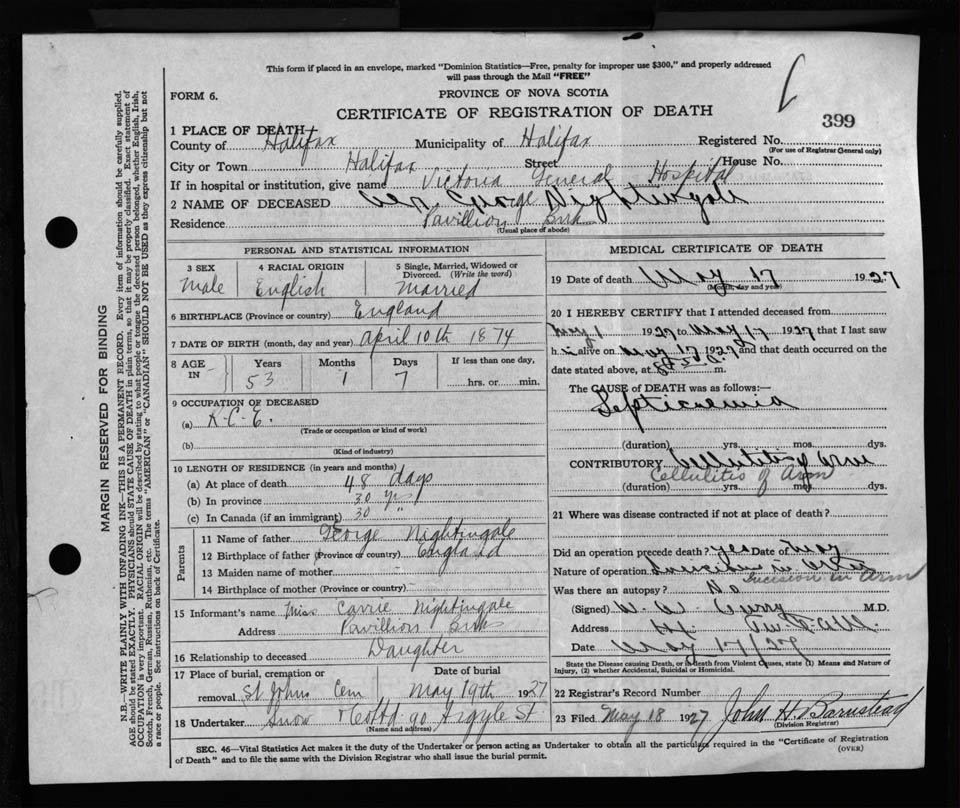 This form if placed in an envelope, marked "Dominion Statistics—Free, penalty for improper use $300," and properly addressed
will pass through the Mail "FREE"
FORM 6.
PROVINCE OF NOVA SCOTIA
CERTIFICATE OF REGISTRATION OF DEATH
399
1 PLACE OF DEATH—
County of Halifax Municipality of Halifax Registered No.
(For use of Registrar General only)
City or Town Halifax Street House No.
If in hospital or institution, give name Victoria General Hospital
2 NAME OF DECEASED George Nightingale
Residence Pavillion
(Usual place of abode)
PERSONAL AND STATISTICAL INFORMATION
3 SEX 4 RACIAL ORIGIN 5 Single, Married, Widowed or Divorced. (Write the word)
Male English Married
6 BIRTHPLACE (Province or country) England
7 DATE OF BIRTH (month, day and year) April 10th 1874
8 AGE IN Years Months Days If less than one day,
53 1 7 hrs. or min.
9 OCCUPATION OF DECEASED
(a) R.C.E.
(Trade or occupation or kind of work)
(b)
(Kind of industry)
10 LENGTH OF RESIDENCE (in years and months)
(a) At place of death 48 days
(b) In province 30 yrs
(c) In Canada (if an immigrant) 30 "
Parents
11 Name of father George Nightingale
12 Birthplace of father (Province or country) England
13 Maiden name of mother
14 Birthplace of mother (Province or country)
15 Informant's name Miss Carrie Nightingale
Address Pavillion
16 Relationship to deceased Daughter
17 Place of burial, cremation or removal Date of burial
St Johns Cem May 19th 1927
18 Undertaker Snow & Co Ltd 90 Argyle St
(Name and address)
MEDICAL CERTIFICATE OF DEATH
19 Date of death May 17 1927
(Month, day and year)
20 I HEREBY CERTIFY that I attended deceased from
May 1 1927 to May 17 1927 that I last saw
h im alive on May 17 1927 and that death occurred on the
date stated above, at m.
The CAUSE of DEATH was as follows:—
Septicaemia
(duration) yrs. mos. dys.
CONTRIBUTORY Cellulitis Arm
Cellulitis of Arm
(duration) yrs. mos. dys.
21 Where was disease contracted if not at place of death?
Did an operation precede death? yes Date of May
Nature of operation Incision in Arm
Incision in Arm
Was there an autopsy? No
(Signed) Curry M.D.
Address
Date May 17/27
State the Disease causing Death, or in death from Violent Causes, state (1) Means and Nature of
Injury, (2) whether Accidental, Suicidal or Homicidal.
22 Registrar's Record Number
23 Filed May 18 1927 John H. Barnstead
(Division Registrar)
SEC. 46—Vital Statistics Act makes it the duty of the Undertaker or person acting as Undertaker to obtain all the particulars required in the "Certificate of Registration
of Death" and to file the same with the Division Registrar who shall issue the burial permit.
(OVER)
MARGIN RESERVED FOR BINDING
N.B.—WRITE PLAINLY WITH UNFADING INK—THIS IS A PERMANENT RECORD. Every item of information should be carefully supplied.
AGE should be stated EXACTLY. PHYSICIANS should STATE CAUSE OF DEATH in plain terms, so that it may be properly classified. Exact statement of
OCCUPATION is very important. RACIAL ORIGIN will be described by stating to what people or tongue the deceased person belonged, whether English, Irish,
Scotch, French, German, Russian, Ruthenian, etc. The terms "AMERICAN" or "CANADIAN" SHOULD NOT BE USED as they express citizenship but not
a race or people. See instructions on back of Certificate.